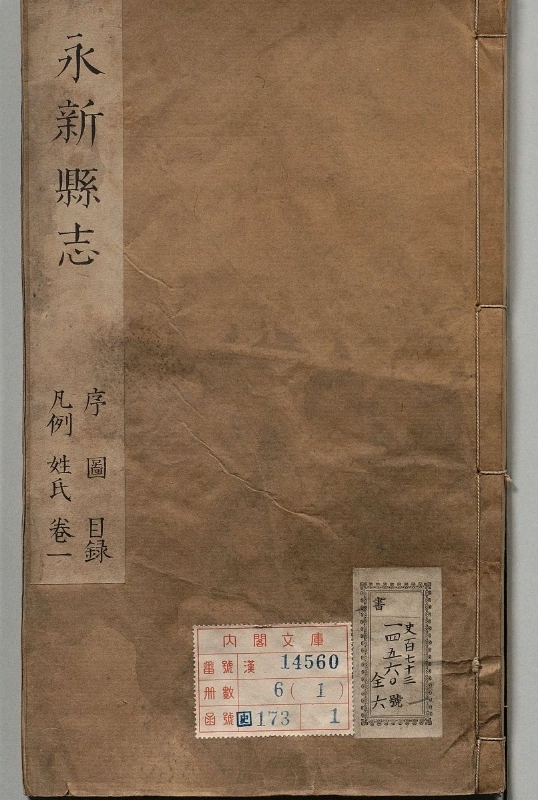 永新縣志
序 圖 目錄
凡例 姓氏 卷一
內閣文庫
番號 漢 14560
冊數 6(1)
函號 史 173 1
書
史百七十三
一四五六〇號
全六